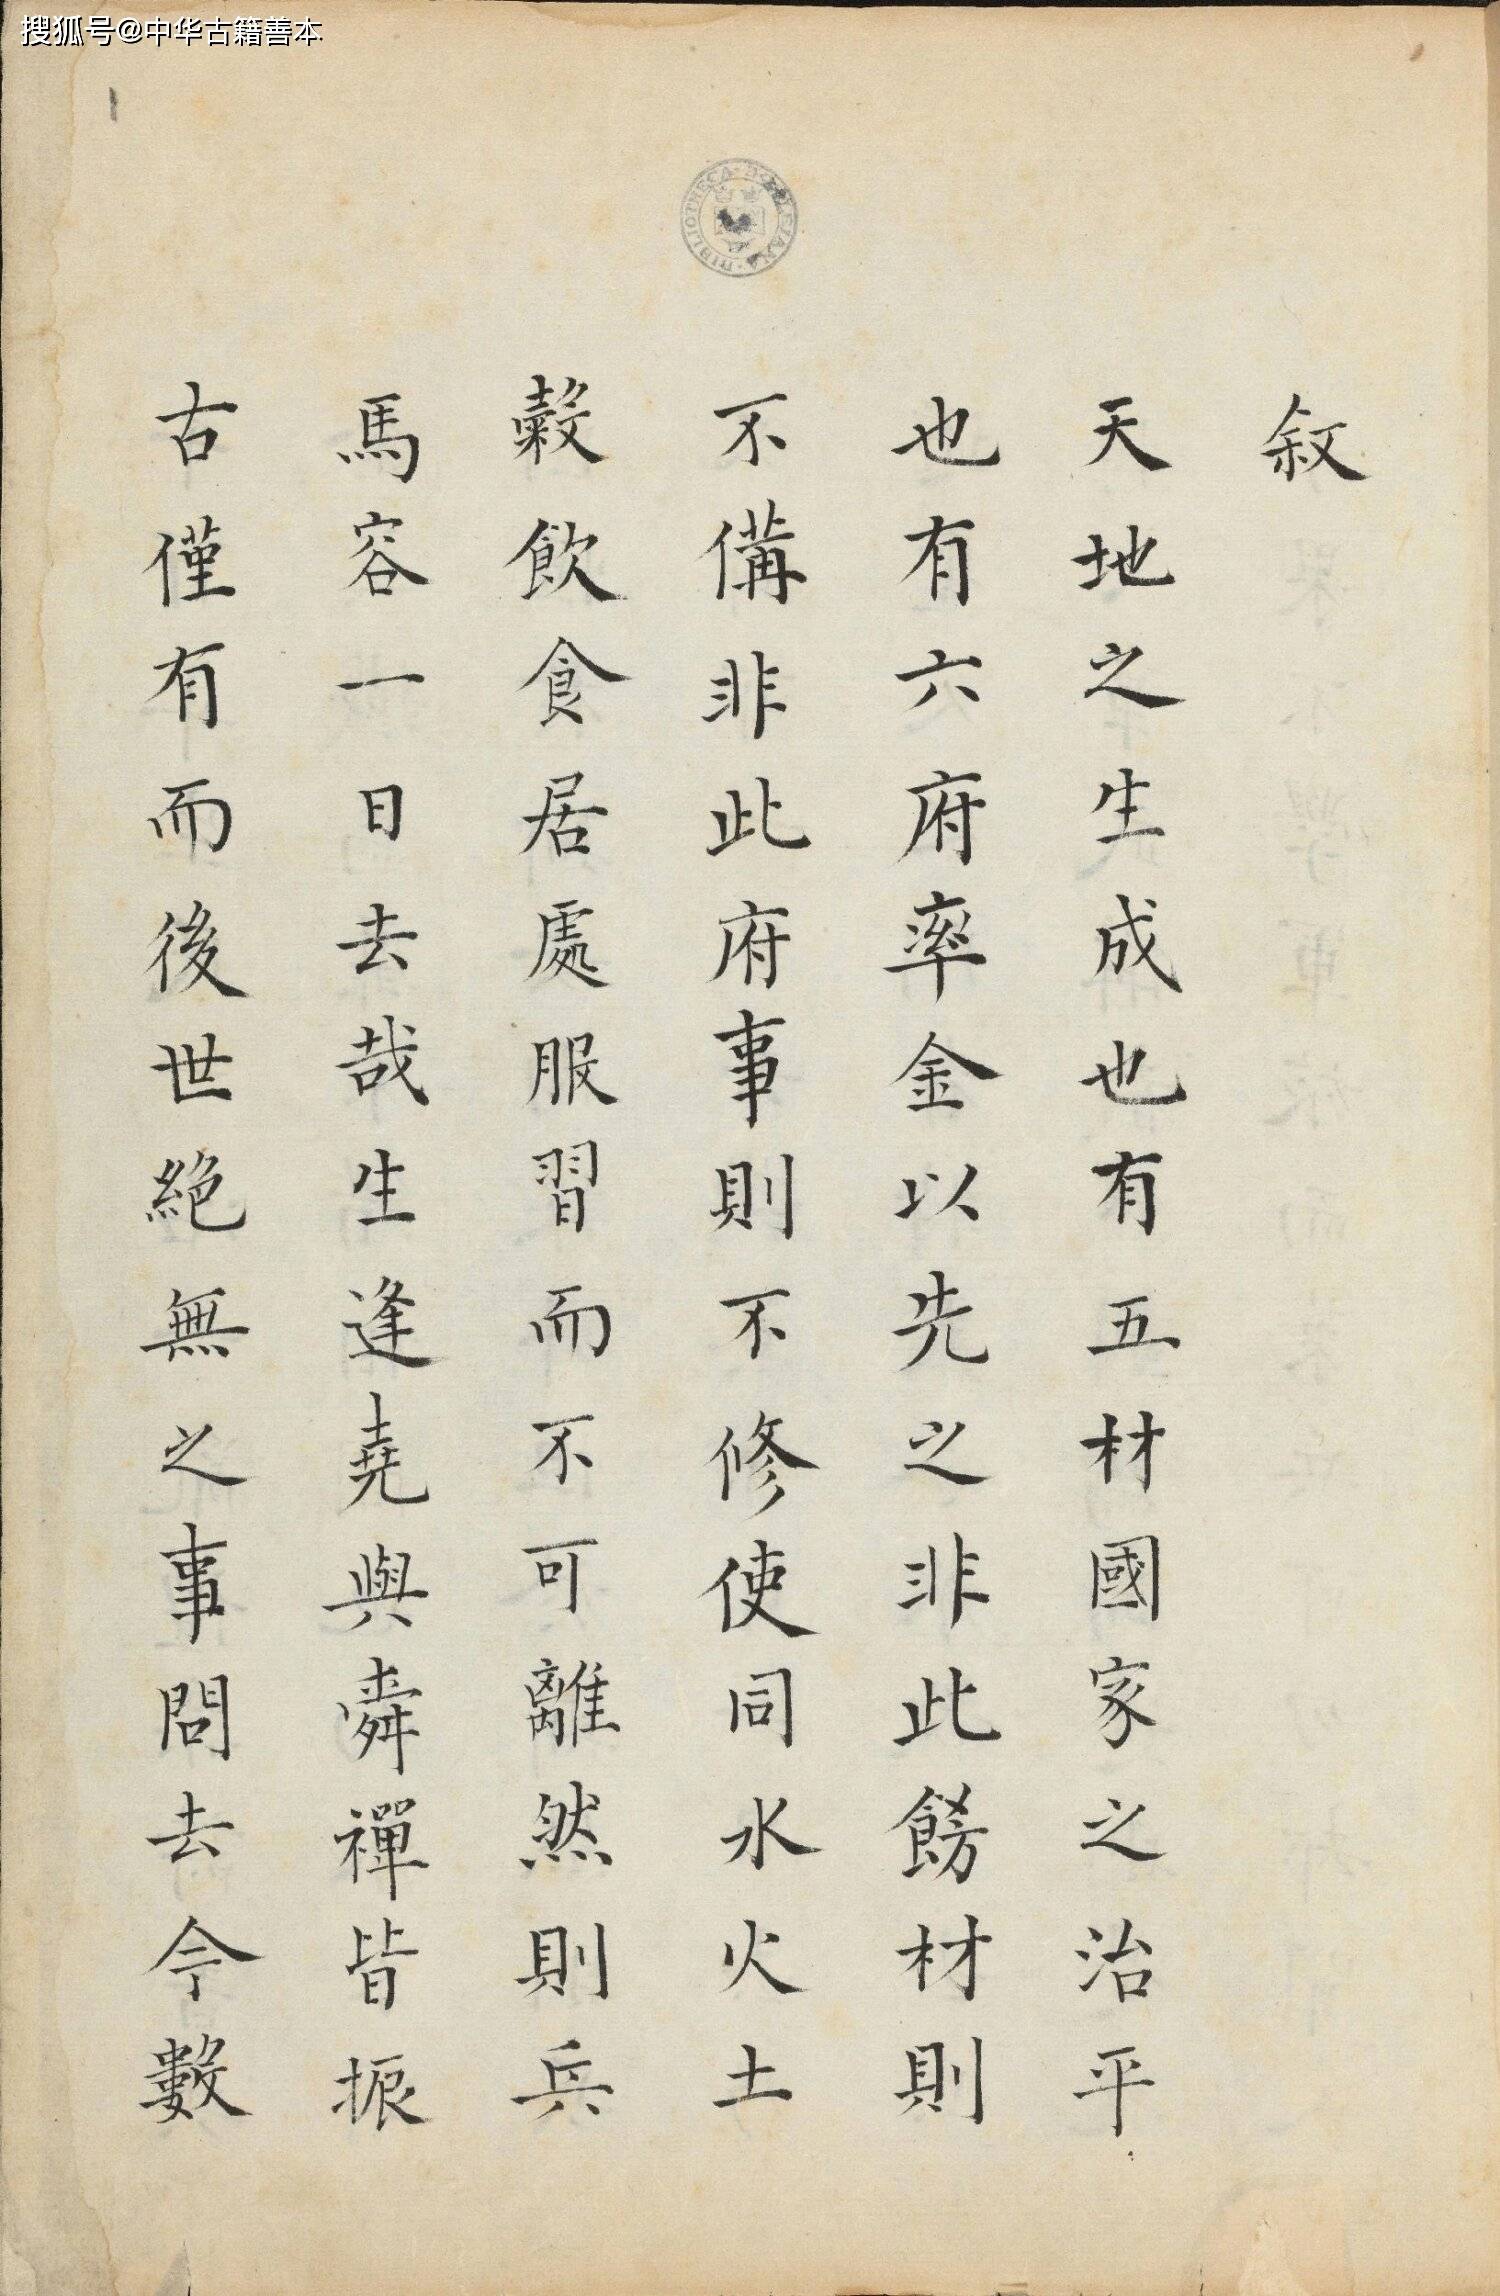 搜狐号@中华古籍善本
叙
天地之生成也有五材國家之治平
也有六府率金以先之非此餝材則
不備非此府事則不修使同水火土
穀飲食居處服習而不可離然則兵
馬容一日去哉生逢堯與舜禪皆振
古僅有而後世絕無之事問去今數
BIBLIOTHECA